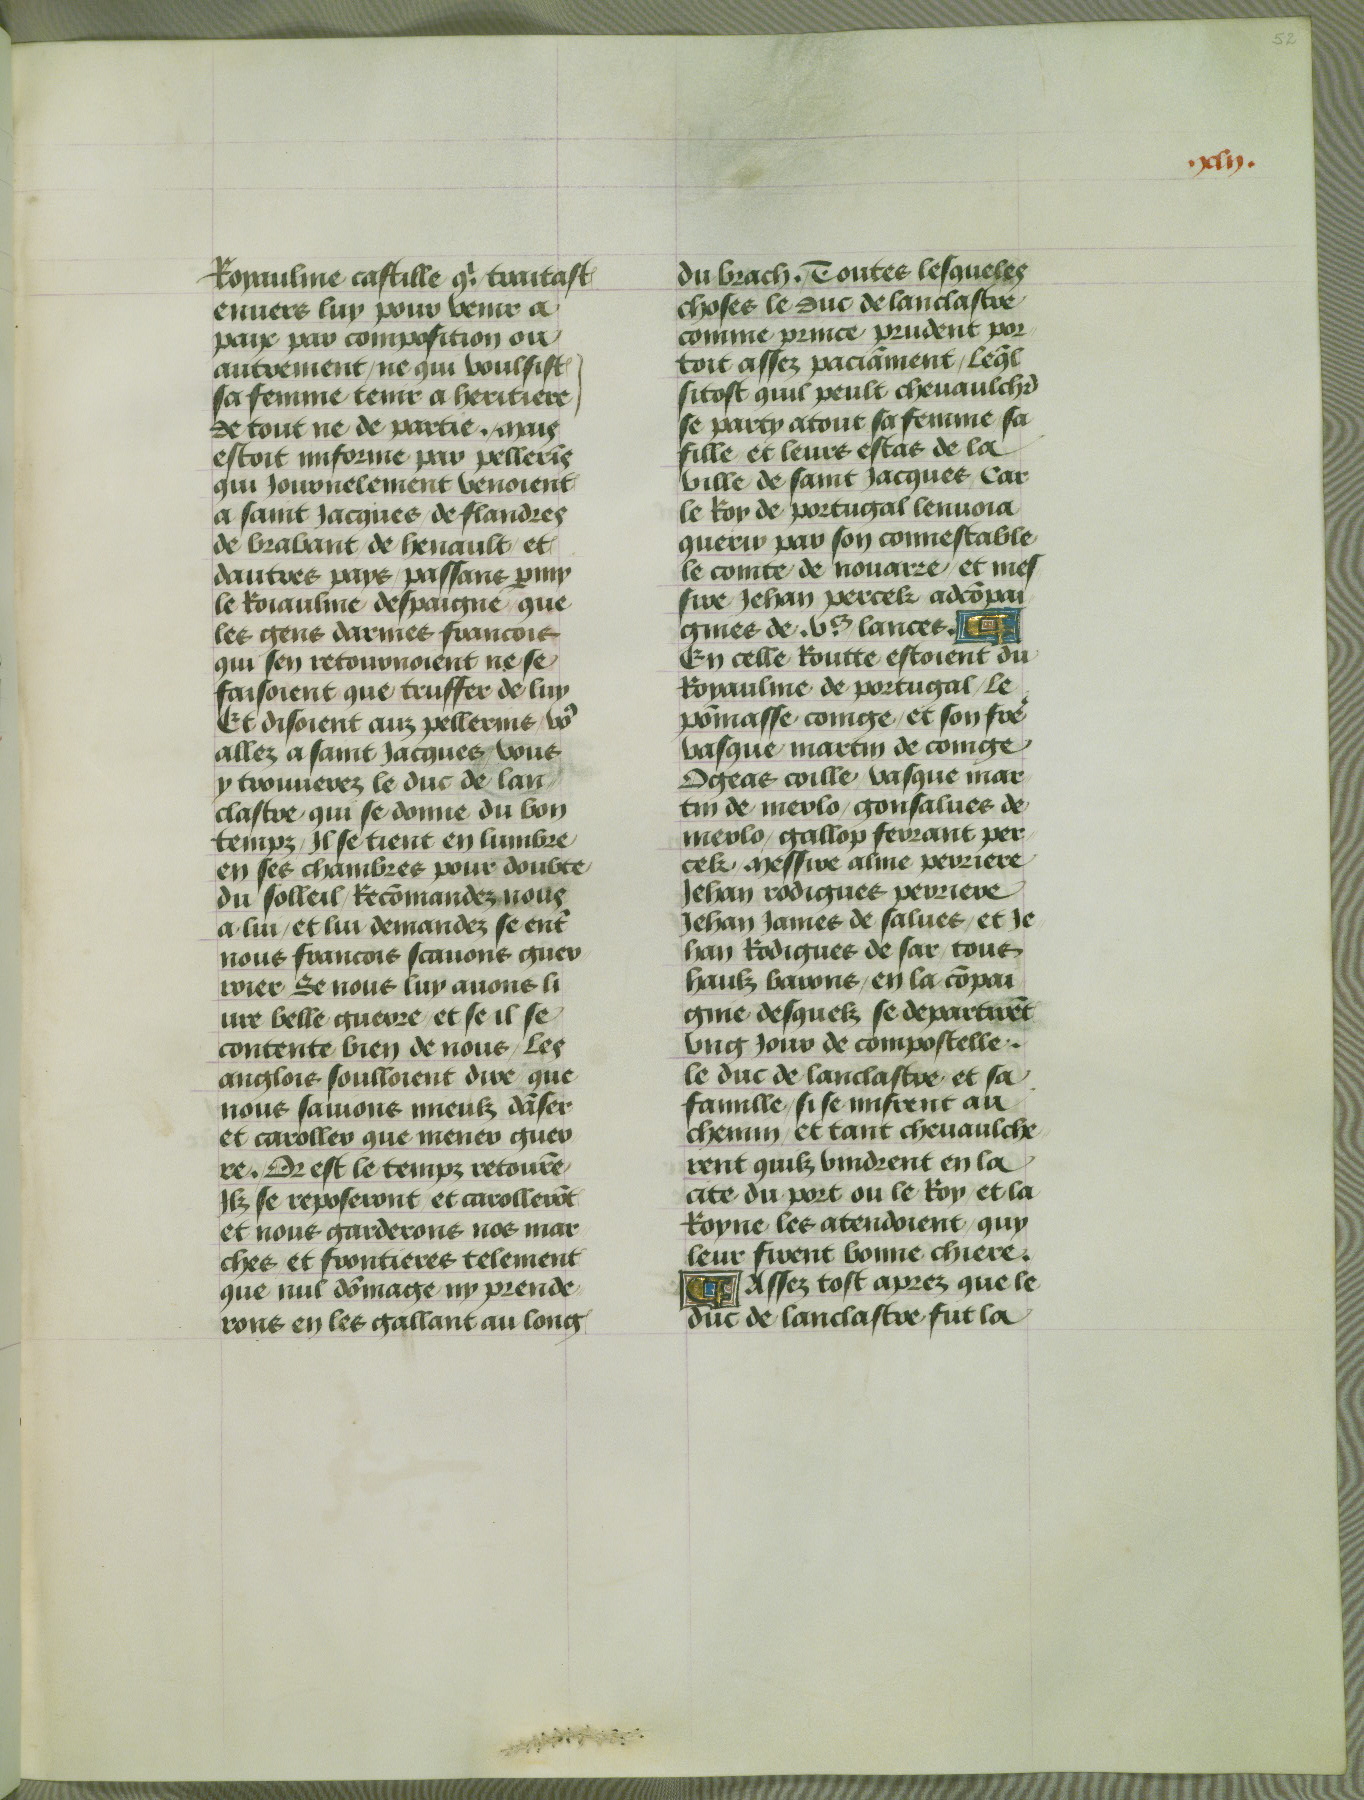 52
.xlij.
Royaulme castille q̇ traitast
enuers luy pour venir a
paix par composition ou
autrement / ne qui voulsist
sa femme tenir a heritiere
de tout ne de partie . Mais
estoit informe par pellerīs
qui Journelement venoient
a saint Jacques de flandres
de brabant de henault et
dautres pays passans ꝑmy
le Roiaulme despaigne que
les gens darmes francois
qui sen retournoient ne se
faisoient que truffer de luy
Et disoient aux pellerins / vo9
allez a saint Jacques vous
y trouuerez le duc de lan
clastre qui se donne du bon
tempz / Il se tient en lumbre
en ses chambres pour doubte
du solleil / Recōmandez nous
a lui / et lui demandez se ent᷑
nous francois scauons guer
roier Se nous luy auons li
ure belle guerre / et se il se
contente bien de nous / Les
anglois soulloient dire que
nous sauions mieulz dāser
et caroller que mener guer
re . Or est le tempz retourne
Ilz se reposeront et carollerōt
et nous garderons nos mar
ches et frontieres telement
que nul dōmage ny prende
rons en les gallant au long
du brach . Toutes lesqueles
choses le duc de lanclastre
comme prince prudent por
toit assez paciāment / Leq̄l
sitost quil peult cheuaulchr̄
se party atout sa femme sa
fille et leurs estas de la
ville de saint Jacques Car
le Roy de portugal lenuoia
querir par son connestable
le comte de nouarre / et mes
sire Jehan percek adcōpai
gnies de .vc. lances .
En celle Routte estoient du
Royaulme de portugal / Le
pōnasse coinge / et son fre᷑
vasque martin de coinge
Ogeas coille vasque mar
tin de merlo / gonsalues de
merlo / gallop ferrant per
cek . Messire alme perriere
Jehan rodigues perriere
Jehan James de salues / et Je
han Rodigues de sar / tous
haulz barons / en la cōpai
gnie desquelz se departirēt
vng Jour de compostelle .
le duc de lanclastre et sa
famille / si se misrent au
chemin / et tant cheuaulche
rent quilz vindrent en la
cite du port ou le Roy et la
Royne les atendoient / quy
leur firent bonne chiere .
Assez tost aprez que le
duc de lanclastre fut la